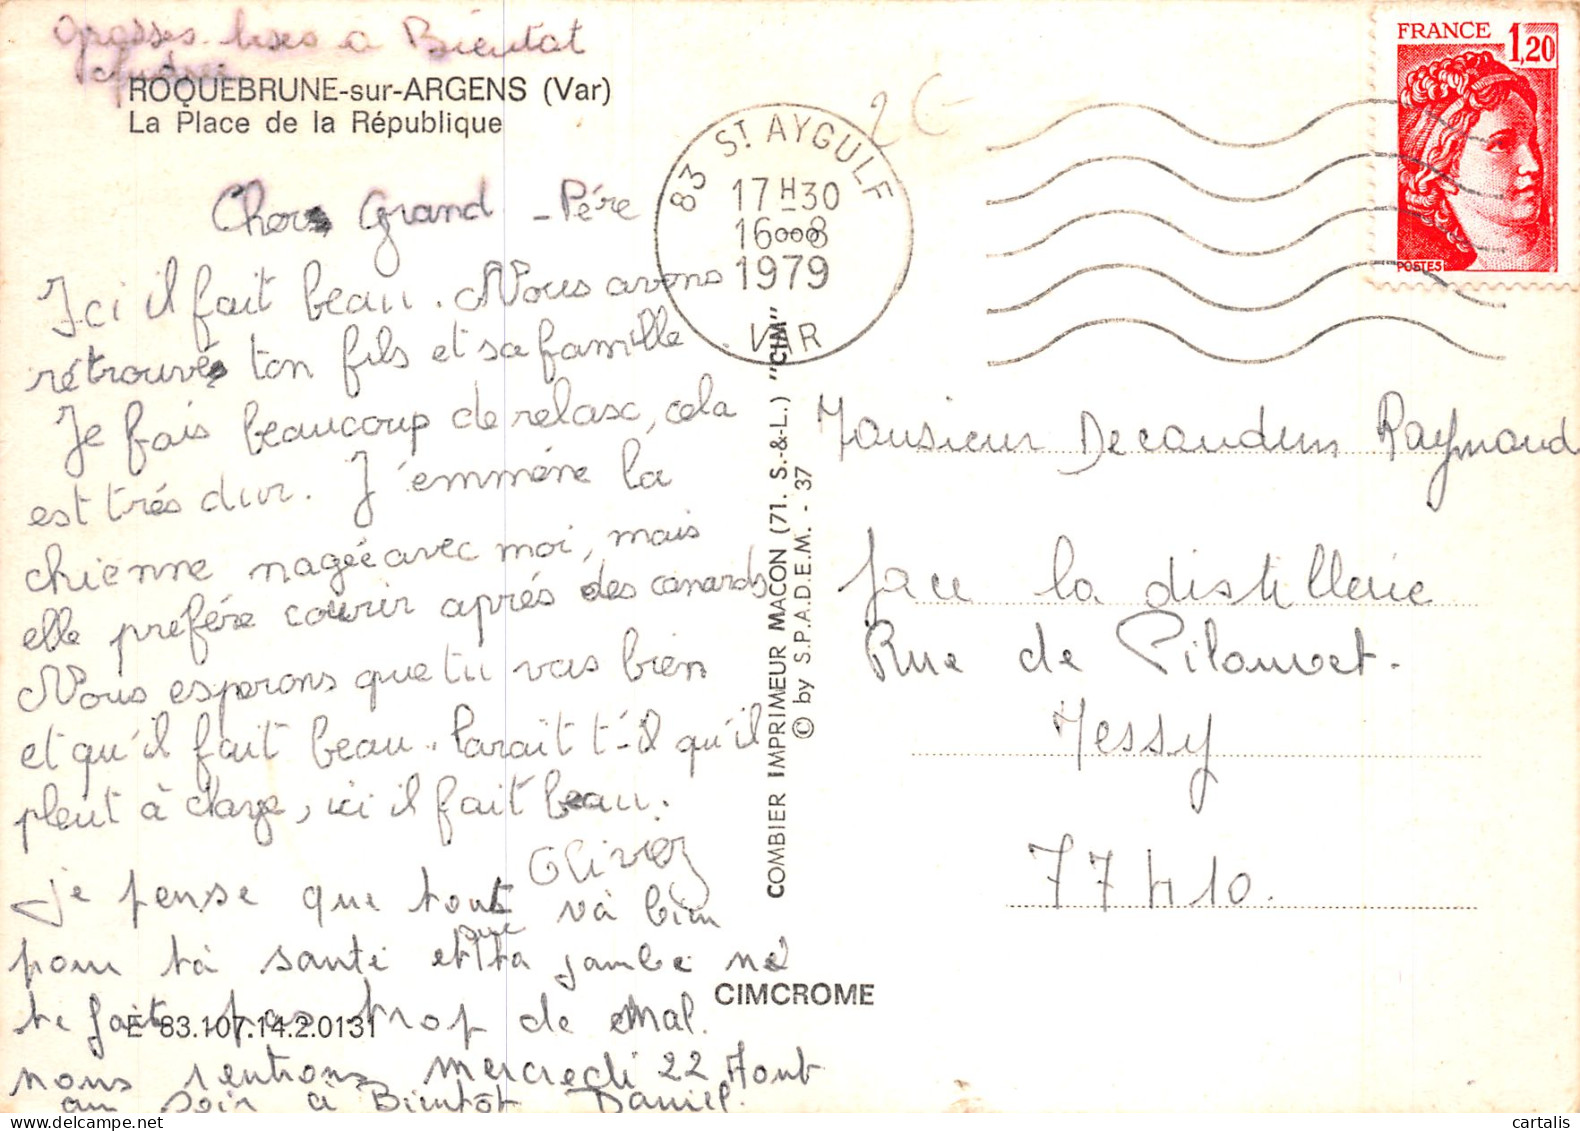 grosses bises a Bientot
ROQUEBRUNE-sur-ARGENS (Var)
La Place de la République
Cher Grand-Pére
Ici il fait beau. Nous avons
rétrouvés ton fils et sa famille
Je fais beaucoup de relasc, cela
est trés dur. J'emméne la
chienne nagée avec moi, mais
elle preféré courir aprés des canards
Nous esperons que tu vas bien
et qu'il fait beau. Parait t-il qu'il
pleut à claye, ici il fait beau.
Olivez
je pense que tout va bien
pour ta santé et que ta jambe ne
te fait pas trop de mal.
nous rentrons mercredi 22 Aout
au soir a Bientot Daniel.
E 83.107.14.2.0131
CIMCROME
COMBIER IMPRIMEUR MACON (71. S.-&-L.) "CIM"
© by S.P.A.D.E.M. - 37
83 ST AYGULF
17H30
16 8
1979
VAR
2€
FRANCE 1,20
POSTES
Monsieur Decaudun Raymond
face la distillerie
Rue de
Messy
77410.